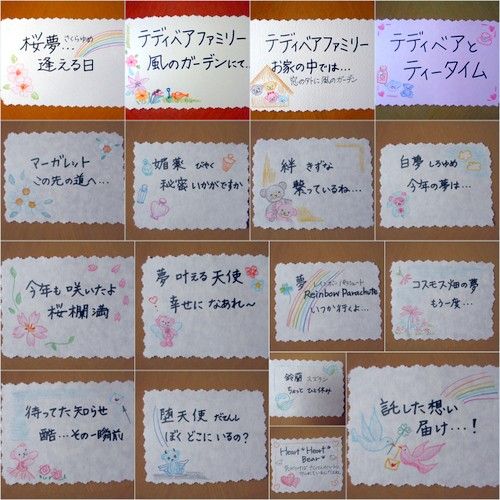 桜夢… さくらゆめ
逢える日
テディベアファミリー
風のガーデンにて…
テディベアファミリー
お家の中では…
窓の外に風のガーデン
テディベアと
ティータイム
マーガレット
この先の道へ…
媚薬 びやく
秘密いかがですか
絆 きずな
繋っているね…
白夢 しろゆめ
今年の夢は…
今年も咲いたよ
桜欄満
夢叶える天使
幸せになあれ〜
夢 レインボーパラシュート
Rainbow Parachute
いつか行くよ…
コスモス畑の夢
もう一度…
待ってた知らせ
酷…その一瞬前
堕天使 だてんし
ぼくどこにいるの?
鈴蘭 スズラン
ちょっとひと休み
Heart*Heart*
Bear*
託した想い
届け…!